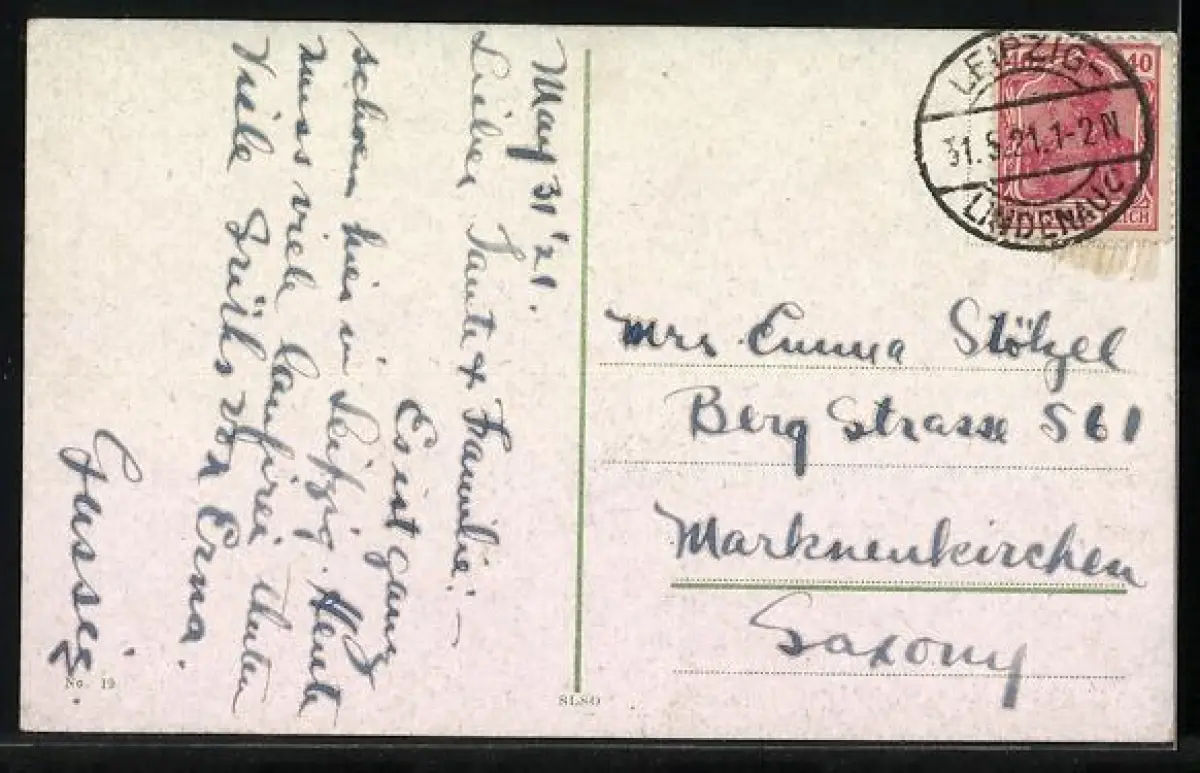 May 31 '21.
Liebe Tante & Familie! –
Es ist ganz
schoen hier in Leipzig. Heute
muss viele
Viele Grüße von Erna.
Gussie.
No. 19
8180
LEIPZIG-
31.5.21.1-2N
LINDENAU
40
Mrs Emma Stölzel
Berg Strasse 561
Markneukirchen
Saxony